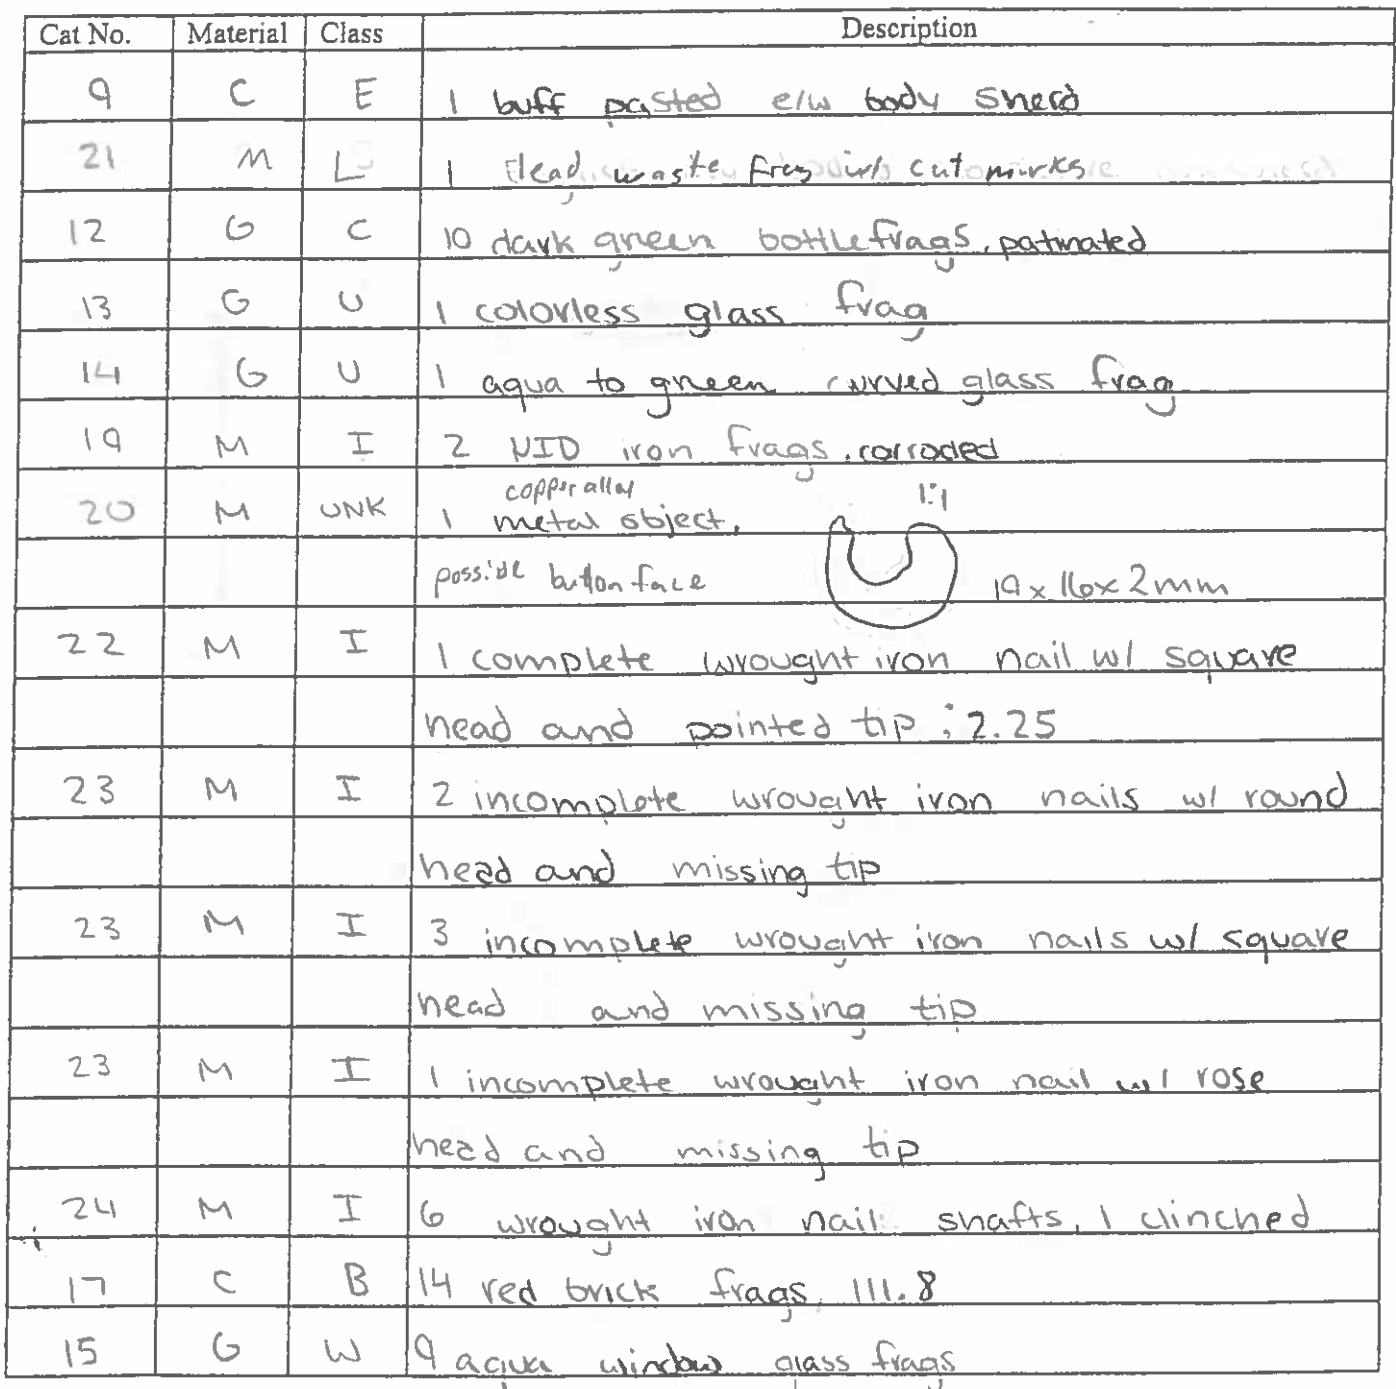 Cat No. Material Class Description
9 C E 1 buff pasted e/w body sherd
21 M L 1 lead waste frag w/ cut marks
12 G C 10 dark green bottle frags, patinated
13 G U 1 colorless glass frag
14 G U 1 aqua to green curved glass frag
19 M I 2 UID iron frags, corroded
copper alloy 1:1
20 M UNK 1 metal object,
possible button face 19 x 16 x 2mm
22 M I 1 complete wrought iron nail w/ square
head and pointed tip; 2.25
23 M I 2 incomplete wrought iron nails w/ round
head and missing tip
23 M I 3 incomplete wrought iron nails w/ square
head and missing tip
23 M I 1 incomplete wrought iron nail w/ rose
head and missing tip
24 M I 6 wrought iron nail shafts, 1 clinched
17 C B 14 red brick frags, 111.8
15 G W 9 aqua window glass frags